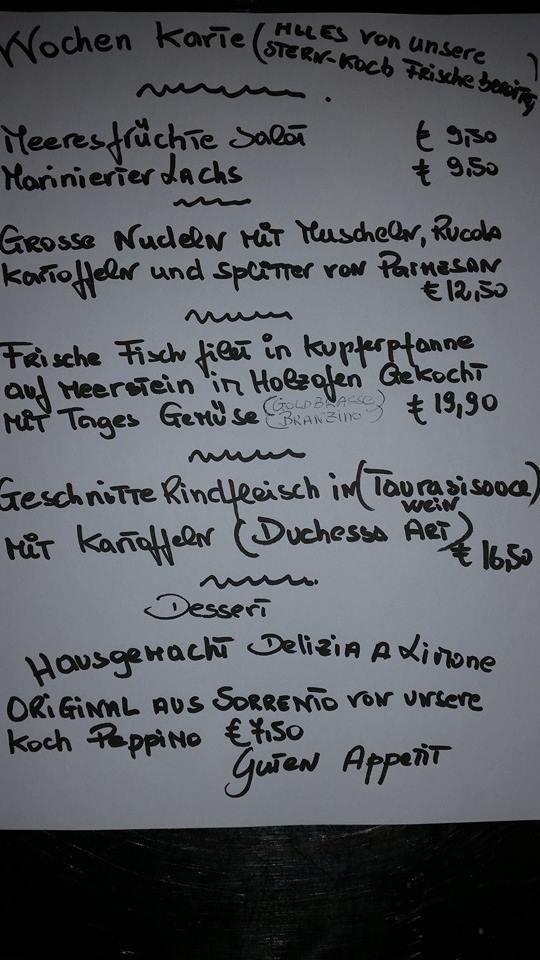 Wochen Karte (ALLES von unsere
STERN-KOCH Frische bereitet)
Meeresfrüchte Salat € 9,50
Marinierter Lachs € 9,50
Grosse Nudeln mit Muscheln, Rucola
Kartoffeln und Splitter von Parmesan
€ 12,50
Frische Fisch filet in Kupferpfanne
auf Meerstein in Holzofen Gekocht
mit Tages Gemüse (GOLDBRASSE € 19,90
BRANZINO)
Geschnitte Rindfleisch in (Taurasisouce)
wein
mit Kartoffeln (Duchessa Art)
€ 16,50
Dessert
Hausgemacht Delizia A Limone
ORIGINAL AUS SORRENTO von unsere
Koch Peppino € 7,50
Guten Appetit